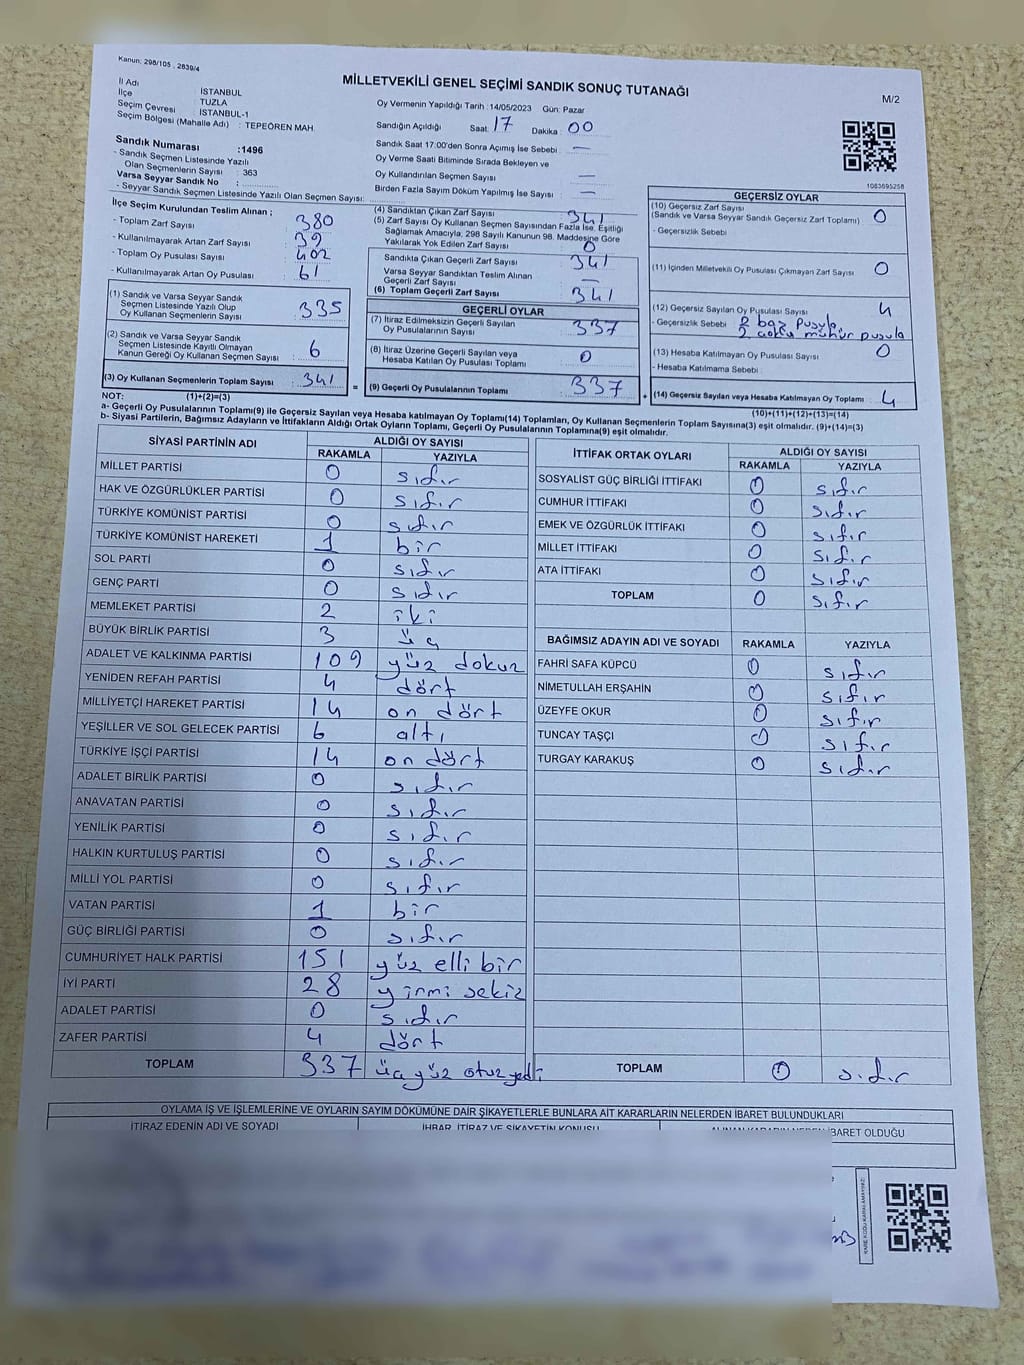 Kanun: 298/105 , 2839/4
MİLLETVEKİLİ GENEL SEÇİMİ SANDIK SONUÇ TUTANAĞI
M/2
İl Adı İSTANBUL
İlçe TUZLA
Seçim Çevresi İSTANBUL-1
Seçim Bölgesi (Mahalle Adı) : TEPEÖREN MAH.
Oy Vermenin Yapıldığı Tarih : 14/05/2023 Gün: Pazar
Sandığın Açıldığı Saat: 17 Dakika : 00
Sandık Saat 17:00'den Sonra Açımış İse Sebebi : —
Oy Verme Saati Bitiminde Sırada Bekleyen ve
Oy Kullandırılan Seçmen Sayısı —
Birden Fazla Sayım Döküm Yapılmış İse Sayısı : —
Sandık Numarası :1496
- Sandık Seçmen Listesinde Yazılı
Olan Seçmenlerin Sayısı : 363
Varsa Seyyar Sandık No :
- Seyyar Sandık Seçmen Listesinde Yazılı Olan Seçmen Sayısı:
1083695258
İlçe Seçim Kurulundan Teslim Alınan ;
- Toplam Zarf Sayısı : 380
- Kullanılmayarak Artan Zarf Sayısı : 39
- Toplam Oy Pusulası Sayısı : 402
- Kullanılmayarak Artan Oy Pusulası : 61
(1) Sandık ve Varsa Seyyar Sandık
Seçmen Listesinde Yazılı Olup
Oy Kullanan Seçmenlerin Sayısı : 335
(2) Sandık ve Varsa Seyyar Sandık
Seçmen Listesinde Kayıtlı Olmayan
Kanun Gereği Oy Kullanan Seçmen Sayısı : 6
(3) Oy Kullanan Seçmenlerin Toplam Sayısı : 341
(4) Sandıktan Çıkan Zarf Sayısı 341
(5) Zarf Sayısı Oy Kullanan Seçmen Sayısından Fazla İse, Eşitliği
Sağlamak Amacıyla, 298 Sayılı Kanunun 98. Maddesine Göre
Yakılarak Yok Edilen Zarf Sayısı : 0
Sandıkta Çıkan Geçerli Zarf Sayısı 341
Varsa Seyyar Sandıktan Teslim Alınan
Geçerli Zarf Sayısı —
(6) Toplam Geçerli Zarf Sayısı 341
GEÇERLİ OYLAR
(7) İtiraz Edilmeksizin Geçerli Sayılan
Oy Pusulalarının Sayısı : 337
(8) İtiraz Üzerine Geçerli Sayılan veya
Hesaba Katılan Oy Pusulası Toplamı : 0
= (9) Geçerli Oy Pusulalarının Toplamı 337
GEÇERSİZ OYLAR
(10) Geçersiz Zarf Sayısı
(Sandık ve Varsa Seyyar Sandık Geçersiz Zarf Toplamı) : 0
- Geçersizlik Sebebi
(11) İçinden Milletvekili Oy Pusulası Çıkmayan Zarf Sayısı : 0
(12) Geçersiz Sayılan Oy Pusulası Sayısı 4
- Geçersizlik Sebebi : 2 boş pusula
2 çoklu mühür pusula
(13) Hesaba Katılmayan Oy Pusulası Sayısı : 0
- Hesaba Katılmama Sebebi :
+ (14) Geçersiz Sayılan veya Hesaba Katılmayan Oy Toplamı : 4
NOT: (1)+(2)=(3)
(10)+(11)+(12)+(13)=(14)
a- Geçerli Oy Pusulalarının Toplamı(9) ile Geçersiz Sayılan veya Hesaba katılmayan Oy Toplamı(14) Toplamları, Oy Kullanan Seçmenlerin Toplam Sayısına(3) eşit olmalıdır. (9)+(14)=(3)
b- Siyasi Partilerin, Bağımsız Adayların ve İttifakların Aldığı Ortak Oyların Toplamı, Geçerli Oy Pusulalarının Toplamına(9) eşit olmalıdır.
SİYASİ PARTİNİN ADI ALDIĞI OY SAYISI
RAKAMLA YAZIYLA
MİLLET PARTİSİ 0 sıfır
HAK VE ÖZGÜRLÜKLER PARTİSİ 0 sıfır
TÜRKİYE KOMÜNİST PARTİSİ 0 sıfır
TÜRKİYE KOMÜNİST HAREKETİ 1 bir
SOL PARTİ 0 sıfır
GENÇ PARTİ 0 sıfır
MEMLEKET PARTİSİ 2 iki
BÜYÜK BİRLİK PARTİSİ 3 üç
ADALET VE KALKINMA PARTİSİ 109 yüz dokuz
YENİDEN REFAH PARTİSİ 4 dört
MİLLİYETÇİ HAREKET PARTİSİ 14 on dört
YEŞİLLER VE SOL GELECEK PARTİSİ 6 altı
TÜRKİYE İŞÇİ PARTİSİ 14 on dört
ADALET BİRLİK PARTİSİ 0 sıfır
ANAVATAN PARTİSİ 0 sıfır
YENİLİK PARTİSİ 0 sıfır
HALKIN KURTULUŞ PARTİSİ 0 sıfır
MİLLİ YOL PARTİSİ 0 sıfır
VATAN PARTİSİ 1 bir
GÜÇ BİRLİĞİ PARTİSİ 0 sıfır
CUMHURİYET HALK PARTİSİ 151 yüz elli bir
İYİ PARTİ 28 yirmi sekiz
ADALET PARTİSİ 0 sıfır
ZAFER PARTİSİ 4 dört
TOPLAM 337 üç yüz otuz yedi
İTTİFAK ORTAK OYLARI ALDIĞI OY SAYISI
RAKAMLA YAZIYLA
SOSYALİST GÜÇ BİRLİĞİ İTTİFAKI 0 sıfır
CUMHUR İTTİFAKI 0 sıfır
EMEK VE ÖZGÜRLÜK İTTİFAKI 0 sıfır
MİLLET İTTİFAKI 0 sıfır
ATA İTTİFAKI 0 sıfır
TOPLAM 0 sıfır
BAĞIMSIZ ADAYIN ADI VE SOYADI RAKAMLA YAZIYLA
FAHRİ SAFA KÜPCÜ 0 sıfır
NİMETULLAH ERŞAHİN 0 sıfır
ÜZEYFE OKUR 0 sıfır
TUNCAY TAŞÇI 0 sıfır
TURGAY KARAKUŞ 0 sıfır
TOPLAM 0 sıfır
OYLAMA İŞ VE İŞLEMLERİNE VE OYLARIN SAYIM DÖKÜMÜNE DAİR ŞİKAYETLERLE BUNLARA AİT KARARLARIN NELERDEN İBARET BULUNDUKLARI
İTİRAZ EDENİN ADI VE SOYADI İHBAR, İTİRAZ VE ŞİKAYETİN KONUSU ALINAN KARARIN NEDEN İBARET OLDUĞU
KARE KODU KARALAMAYINIZ!